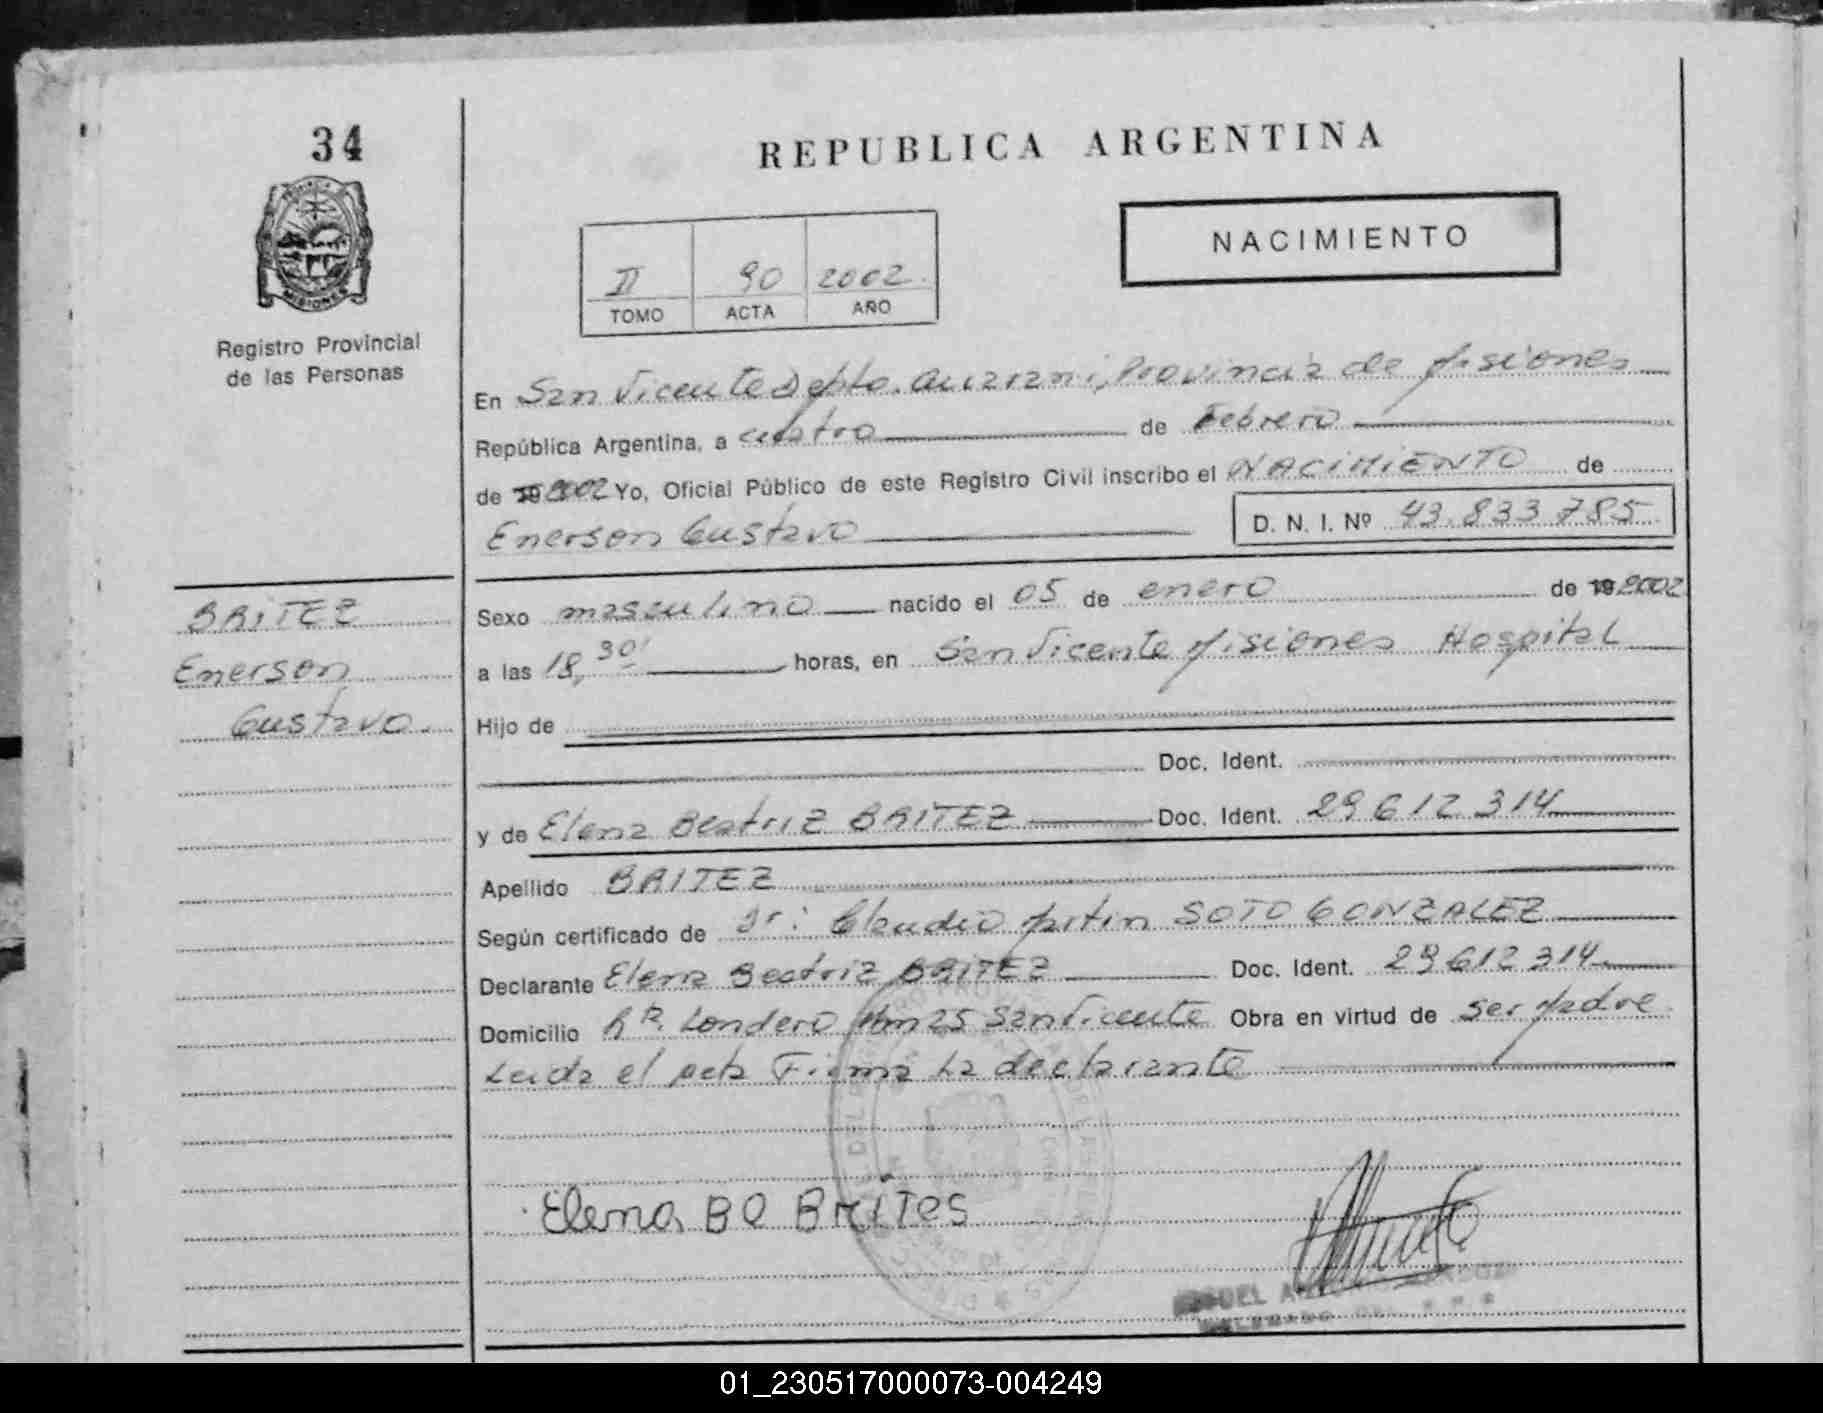 34
REPUBLICA ARGENTINA
NACIMIENTO
MISIONES
Registro Provincial
de las Personas
II 90 2002
TOMO ACTA AÑO
En San Vicente Depto. Guarani, Provincia de Misiones
República Argentina, a cuatro de Febrero
de 19 2002 Yo, Oficial Público de este Registro Civil inscribo el NACIMIENTO de
Enerson Gustavo D. N. I. Nº 43.833 785
BRITEZ
Enerson
Gustavo.
Sexo masculino nacido el 05 de enero de 19 2002
a las 18,30' horas, en San Vicente Misiones Hospital
Hijo de
Doc. Ident.
y de Elena Beatriz BRITEZ Doc. Ident. 29 612 314
Apellido BRITEZ
Según certificado de Dr: Claudio Martin SOTO GONZALEZ
Declarante Elena Beatriz BRITEZ Doc. Ident. 29 612 314
Domicilio Londero Km 25 San Vicente Obra en virtud de ser Madre
Leida el acta Firma La declarante
Elena BO BRITES
01_230517000073-004249